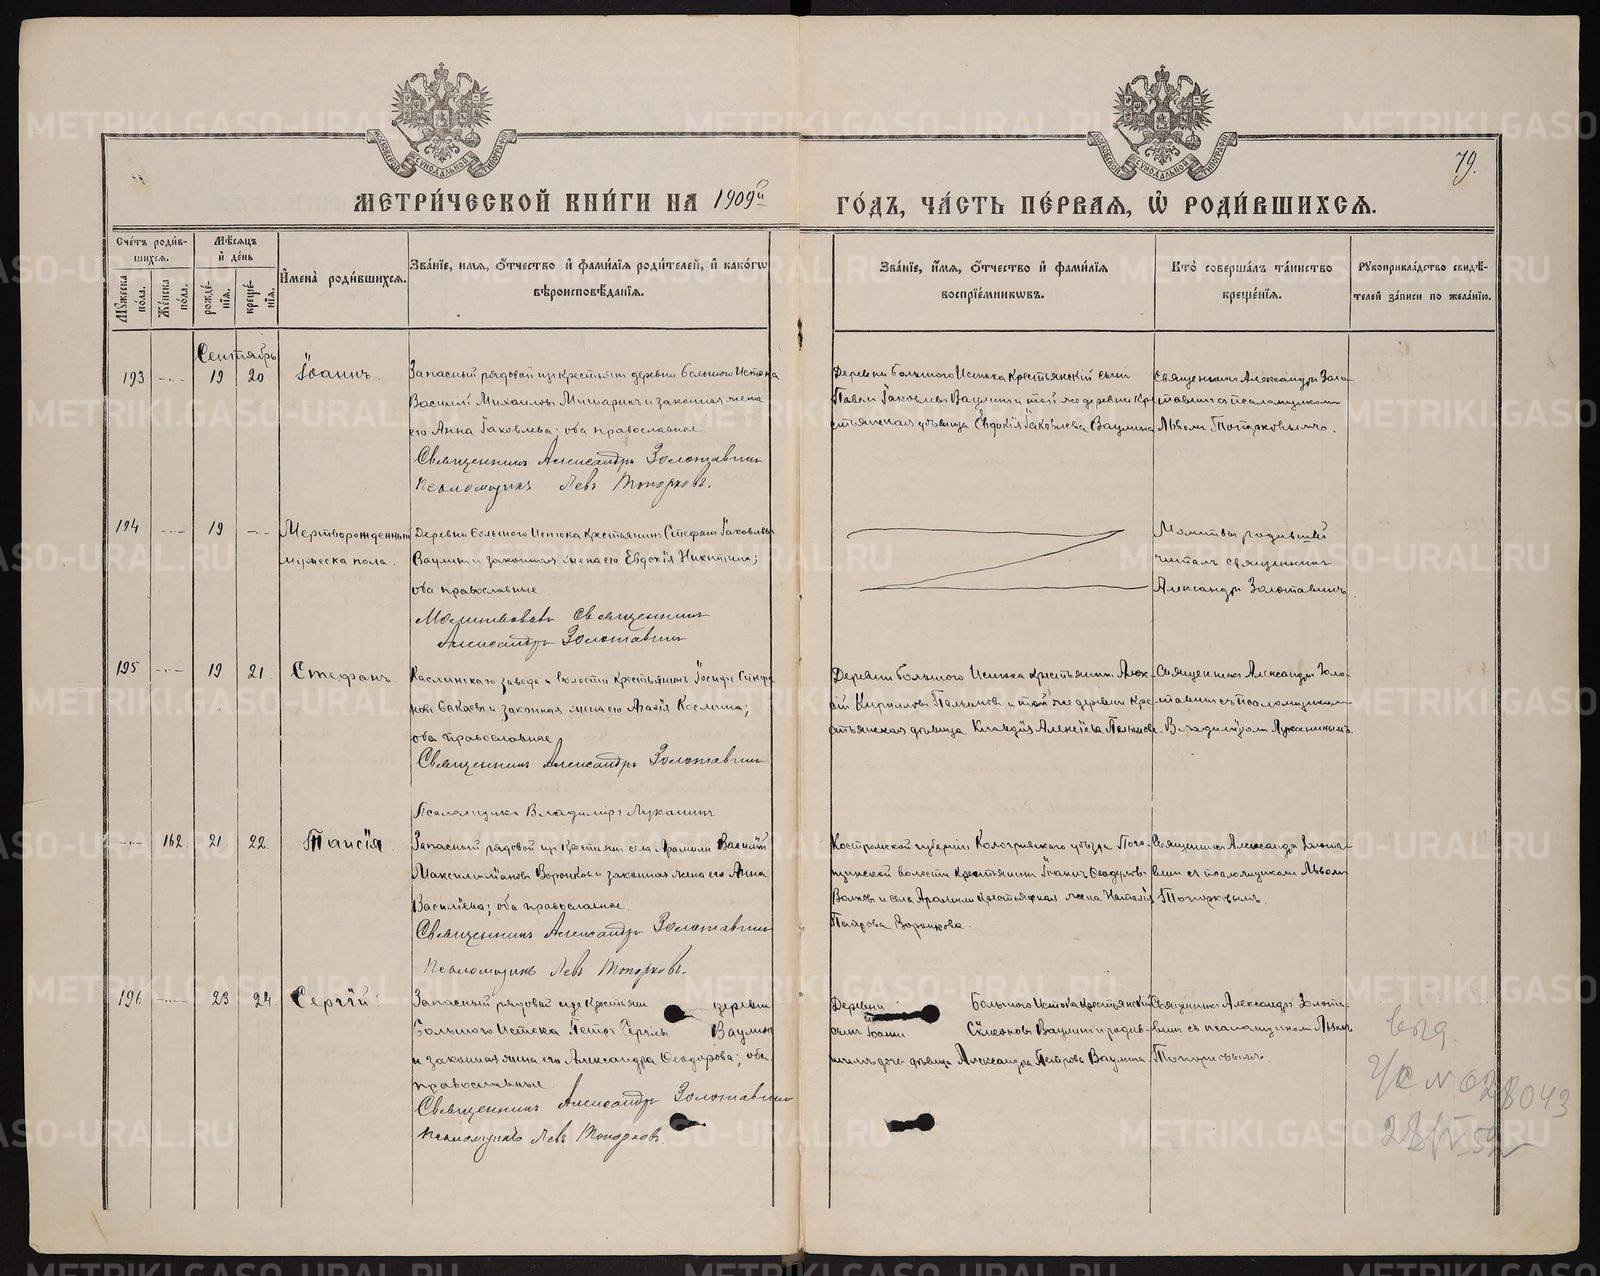 79.
МОСКОВСКОЙ СУНОДАЛЬНОЙ ТИПОГРАФІИ
МОСКОВСКОЙ СУНОДАЛЬНОЙ ТИПОГРАФІИ
МЕТРИ́ЧЕСКОЙ КНИ́ГИ НА 1909й ГО́ДЪ, ЧА́СТЬ ПЕ́РВАЯ, Ѡ РОДИ́ВШИХСЯ.
Сче́тъ роди́в-
шихся.
Мꙋжеска по́ла.
Же́нска по́ла.
Мѣ́сяцъ
и҆ де́нь
рожде́-
нїя.
креще́-
нїя.
И҆мена̀ роди́вшихся.
Зва́нїе, и́мя, о҆́тчество и҆ фами́лїя роди́телей, и҆ како́гѡ
вѣроисповѣ́данїя.
Зва́нїе, и҆́мя, о҆́тчество и҆ фами́лїя
воспрїе́мникѡвъ.
Кто̀ соверша́лъ та́инство
креще́нїя.
Рꙋкоприкла́дство свидѣ́-
телей за́писи по жела́нїю.
Сентябрь
193 -..- 19 20 Іоаннъ.
Запасный рядовой изъ крестьянъ деревни Большого Истока
Василій Михаиловъ Мишаринъ и законная жена
его Анна Іаковлева; оба православные.
Священникъ Александръ Золотавинъ
Псаломщикъ Левъ Топорковъ.
Деревни Большого Истока крестьянскій сынъ
Павелъ Іаковлевъ Ваулинъ и той же деревни кре
стьянская дѣвица Евдокія Іаковлева Ваулина
Священникъ Александръ Золо-
тавинъ съ псаломщикомъ
Львомъ Топорковымъ.
194 -..- 19 -..- Мертворожденный
мужеска пола.
Деревни Большого Истока крестьянинъ Стефанъ Іаковлевъ
Ваулинъ и законная жена его Евдокія Никитина;
оба православные.
Молитвовалъ Священникъ
Александръ Золотавинъ
Молитвы родившей
читалъ священникъ
Александръ Золотавинъ.
195 -..- 19 21 Стефанъ.
Каслинскаго завода и волости крестьянинъ Іосифъ
и законная жена его Агафія Космина;
оба православные
Священникъ Александръ Золотавинъ
Псаломщикъ Владиміръ Луканинъ
Деревни Большого Истока крестьянинъ Алек-
сій Кирилловъ и той же деревни кре
стьянская дѣвица Клавдія Алексіева
Священникъ Александръ Золо-
тавинъ съ псаломщикомъ
Владиміромъ Луканинымъ.
-..- 162 21 22 Таисія.
Запасный рядовой изъ крестьянъ села Арамили Василій
Максимиліановъ Воронковъ и законная жена его Анна
Васильева; оба православные.
Священникъ Александръ Золотавинъ
Псаломщикъ Левъ Топорковъ.
Костромской губерніи Кологривскаго уѣзда
волости крестьянинъ Іоаннъ Ѳеодуловъ
Волковъ и села Арамили крестьянская жена Наталія
Воронкова.
Священникъ Александръ Золота-
винъ съ псаломщикомъ Львомъ
Топорковымъ.
196 -..- 23 24 Сергій
Запасный рядовой изъ крестьянъ деревни
Большого Истока Петръ Сергіевъ Ваулинъ
и законная жена его Александра Ѳеодорова; оба
православные.
Священникъ Александръ Золотавинъ
Псаломщикъ Левъ Топорковъ.
Деревни Большого Истока крестьянскій
сынъ Іоаннъ Симеоновъ Ваулинъ и
дѣвица Александра Петрова Ваулина
Священникъ Александръ Золота-
винъ съ псаломщикомъ Львомъ
Топорковымъ.
выд.